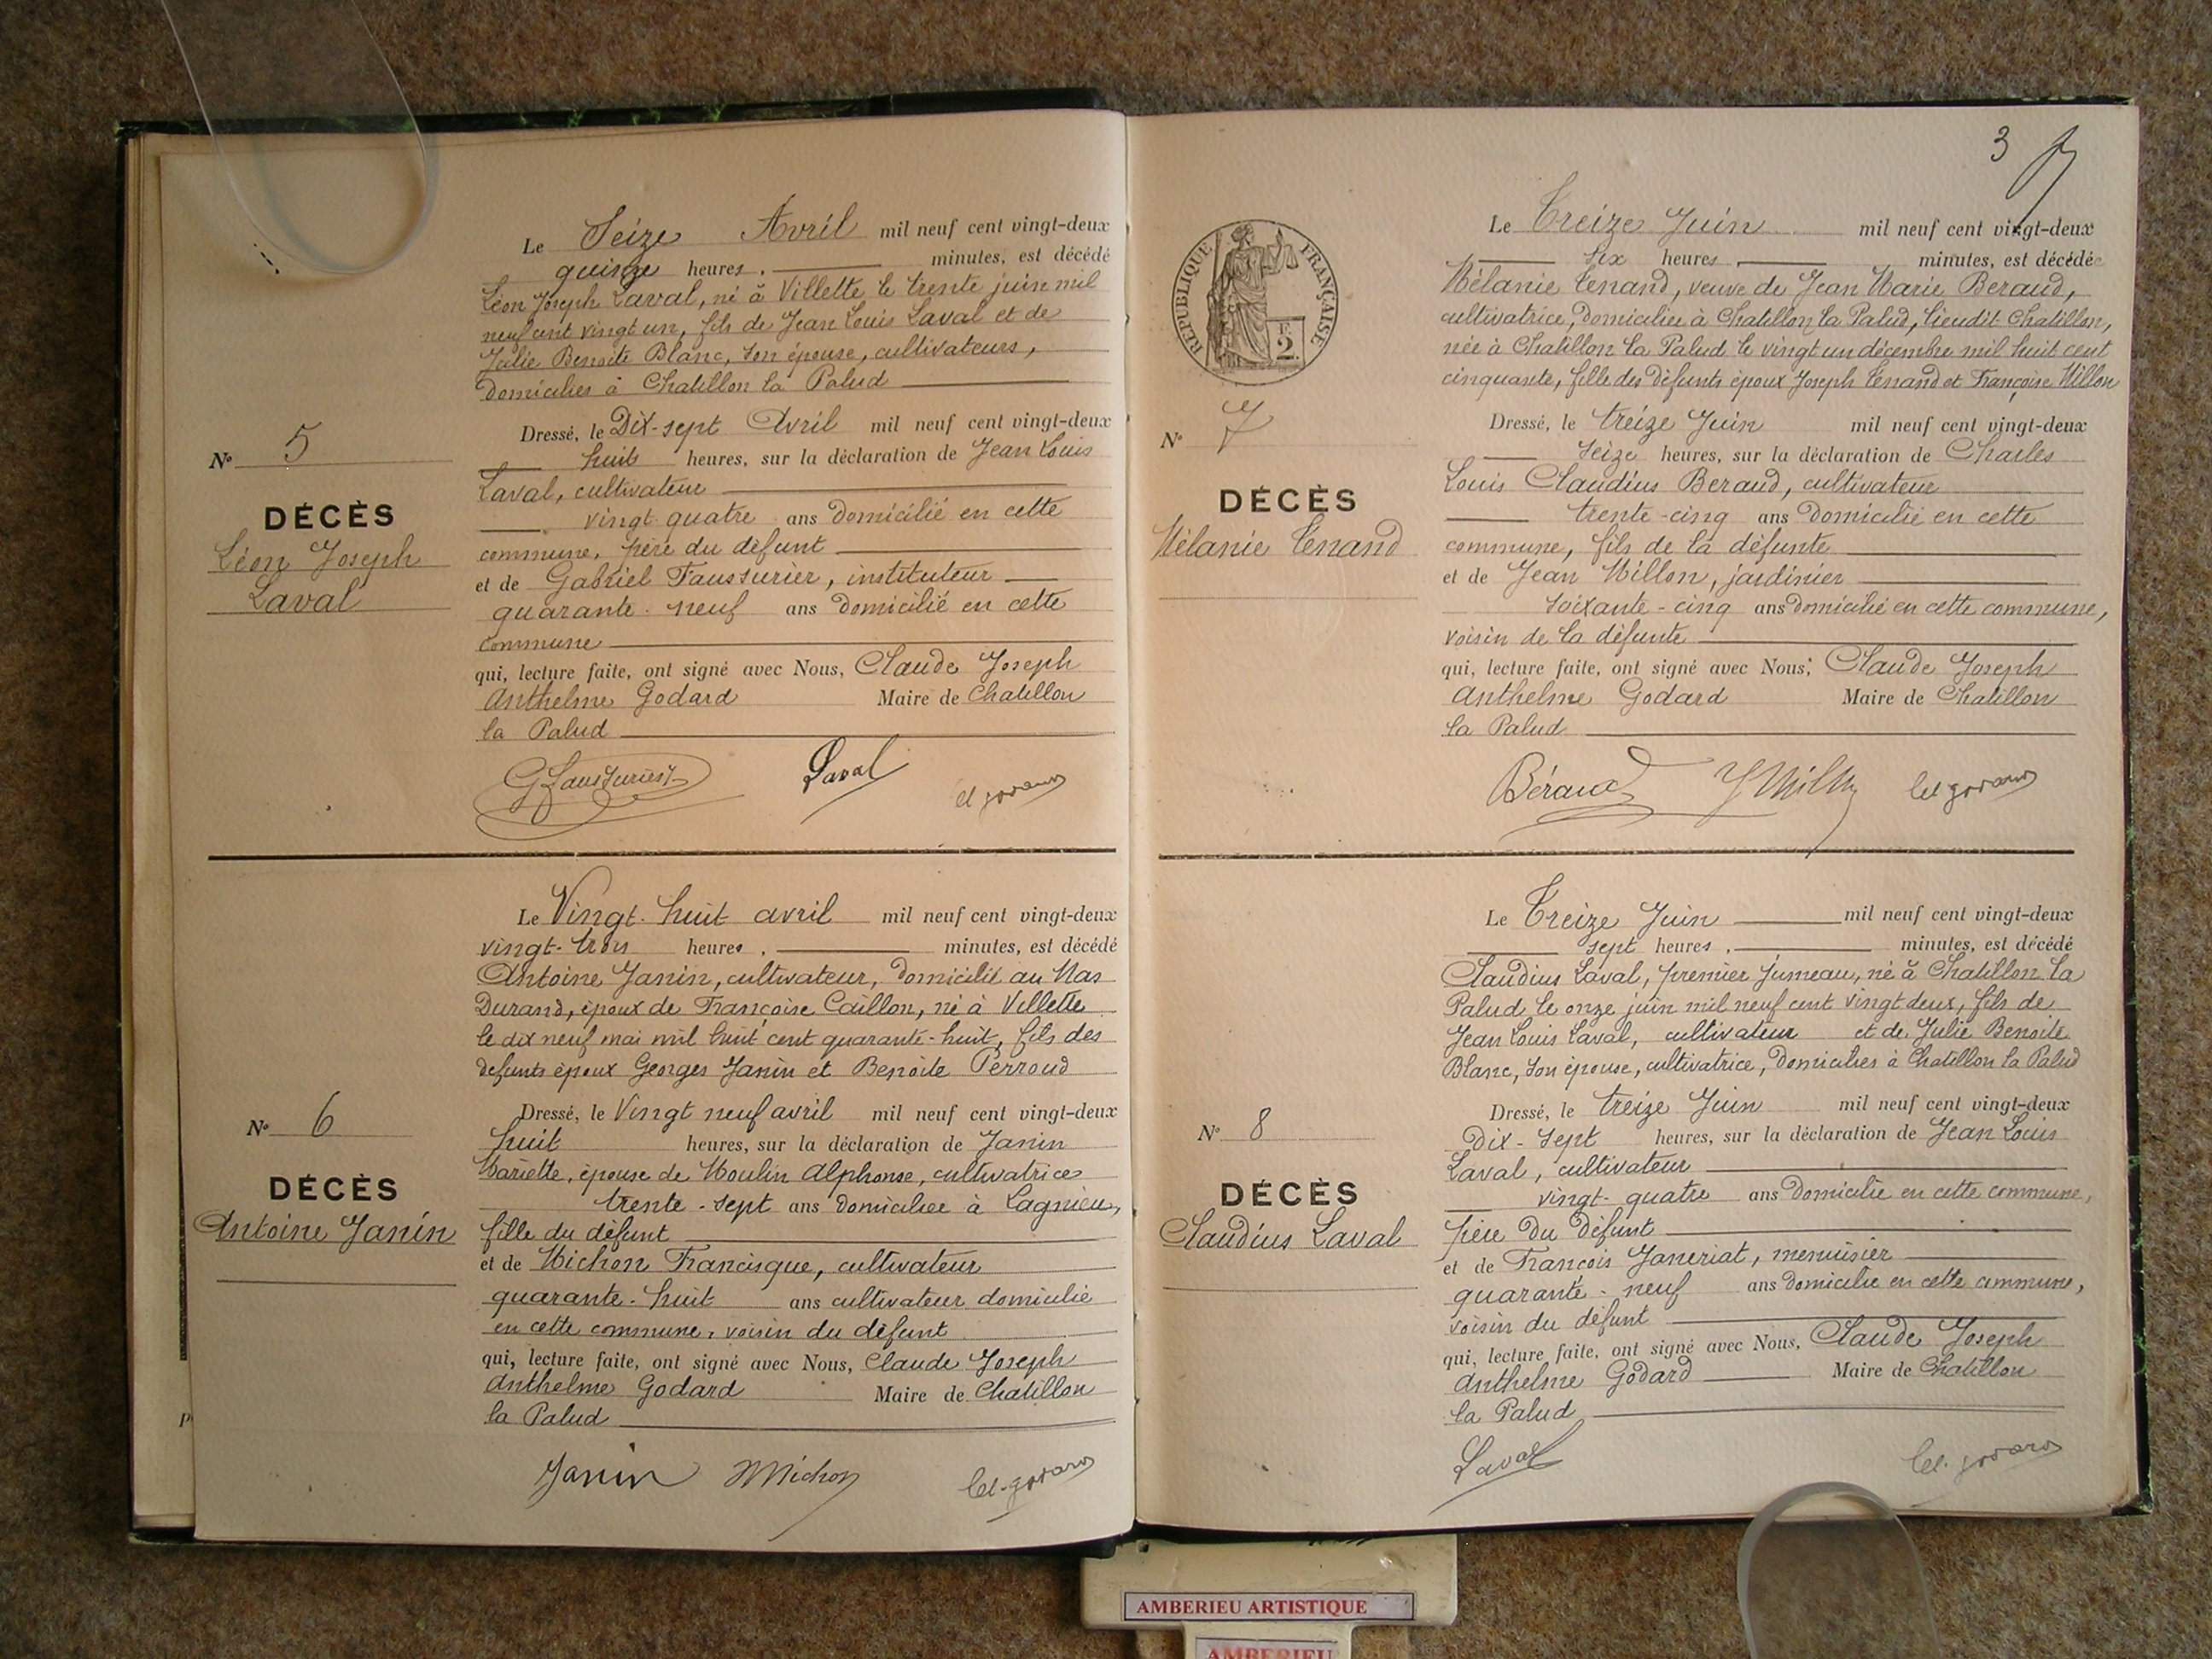 Le Seize Avril mil neuf cent vingt-deux
quinze heures, minutes, est décédé
Léon Joseph Laval, né à Villette le trente juin mil
neuf cent vingt un, fils de Jean Louis Laval et de
Julie Benoite Blanc, son épouse, cultivateurs,
domiciliés à Chatillon la Palud
Dressé, le Dix-sept Avril mil neuf cent vingt-deux
huit heures, sur la déclaration de Jean Louis
Laval, cultivateur
vingt quatre ans domicilié en cette
commune, père du défunt
et de Gabriel Fausturier, instituteur
quarante-neuf ans domicilié en cette
commune
qui, lecture faite, ont signé avec Nous, Claude Joseph
Anthelme Godard Maire de Chatillon
la Palud
Laval
N° 5
DÉCÈS
Léon Joseph
Laval
Le Vingt-huit avril mil neuf cent vingt-deux
vingt-trois heures, minutes, est décédé
Antoine Janin, cultivateur, domicilié au Mas
Durand, époux de Françoise Caillon, né à Villette
le dix neuf mai mil huit cent quarante-huit, fils des
defunts époux Georges Janin et Benoite Perroud
Dressé, le Vingt neuf avril mil neuf cent vingt-deux
huit heures, sur la déclaration de Janin
Mariette, épouse de Moulin Alphonse, cultivatrice
trente-sept ans domiciliée à Lagnieu,
fille du défunt
et de Michon Francisque, cultivateur
quarante-huit ans cultivateur domicilié
en cette commune, voisin du défunt
qui, lecture faite, ont signé avec Nous, Claude Joseph
Anthelme Godard Maire de Chatillon
la Palud
Janin Michon
N° 6
DÉCÈS
Antoine Janin
3
RÉPUBLIQUE FRANÇAISE
2
Le Treize Juin mil neuf cent vingt-deux
six heures, minutes, est décédée
Mélanie Tenand, veuve de Jean Marie Beraud,
cultivatrice, domiciliée à Chatillon la Palud, lieudit Chatillon,
née à Chatillon la Palud le vingt un décembre mil huit cent
cinquante, fille des défunts époux Joseph Tenand et Françoise Millon
Dressé, le treize Juin mil neuf cent vingt-deux
seize heures, sur la déclaration de Charles
Louis Claudius Beraud, cultivateur
trente-cinq ans domicilié en cette
commune, fils de la défunte
et de Jean Millon, jardinier
soixante-cinq ans domicilié en cette commune,
voisin de la défunte
qui, lecture faite, ont signé avec Nous, Claude Joseph
Anthelme Godard Maire de Chatillon
la Palud
Béraud
N° 7
DÉCÈS
Mélanie Tenand
Le Treize Juin mil neuf cent vingt-deux
sept heures, minutes, est décédé
Claudius Laval, premier jumeau, né à Chatillon la
Palud le onze juin mil neuf cent vingt deux, fils de
Jean Louis Laval, cultivateur et de Julie Benoite
Blanc, son épouse, cultivatrice, domiciliés à Chatillon la Palud
Dressé, le treize Juin mil neuf cent vingt-deux
dix-sept heures, sur la déclaration de Jean Louis
Laval, cultivateur
vingt-quatre ans domicilié en cette commune,
père du défunt
et de François Janeriat, menuisier
quarante-neuf ans domicilié en cette commune,
voisin du défunt
qui, lecture faite, ont signé avec Nous, Claude Joseph
Anthelme Godard Maire de Chatillon
la Palud
Laval
N° 8
DÉCÈS
Claudius Laval
AMBERIEU ARTISTIQUE
AMBERIEU